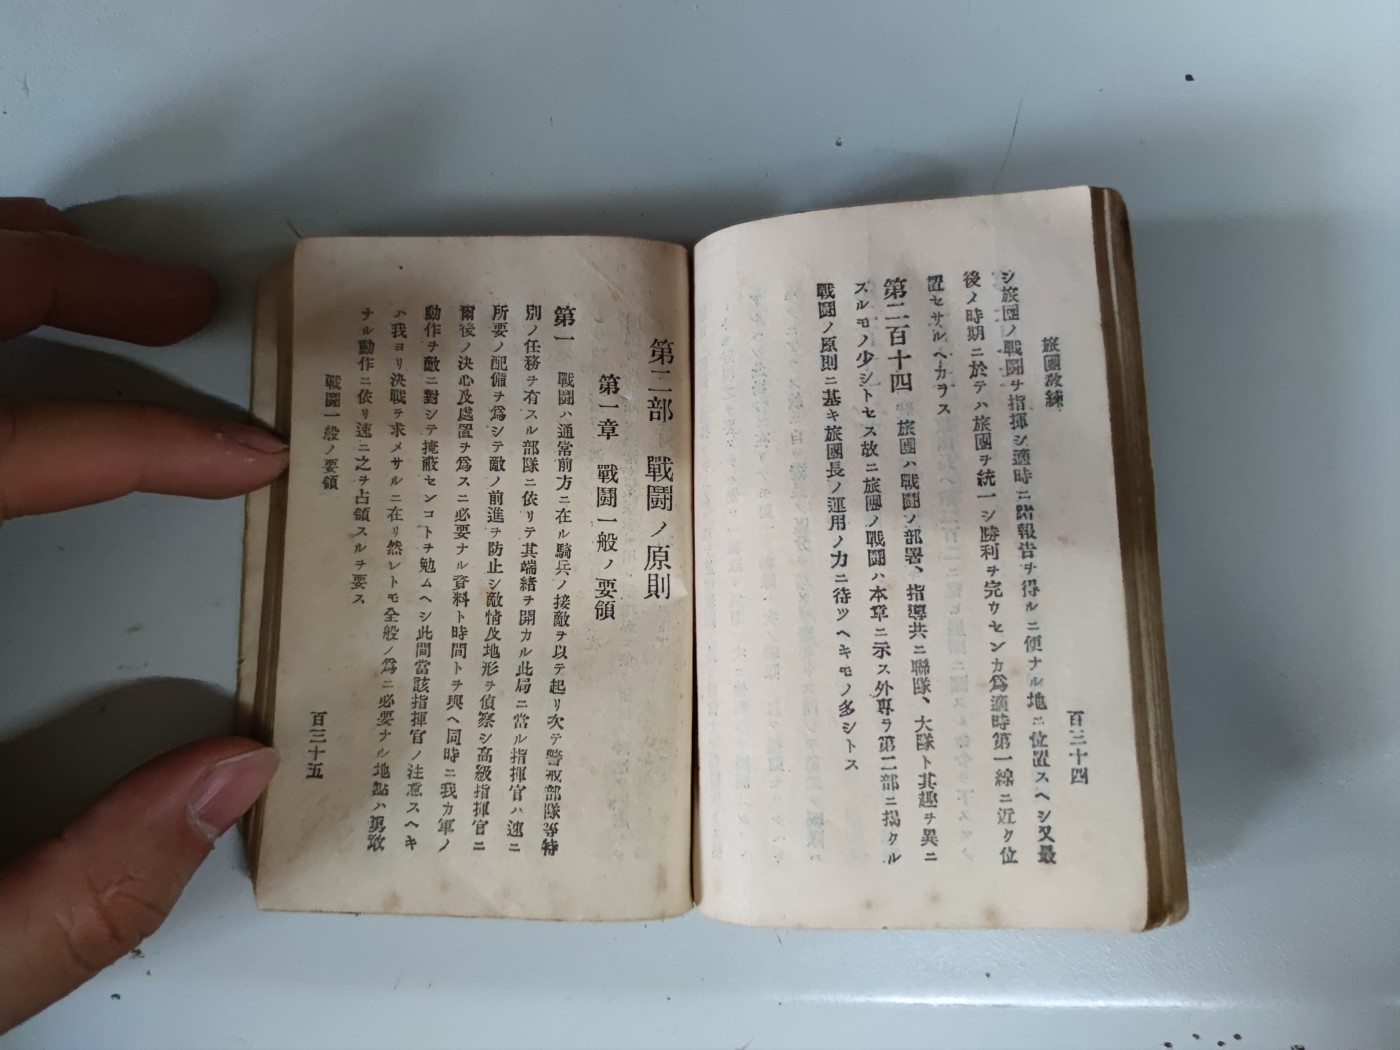 旅團敎練
シ旅團ノ戰鬪ヲ指揮シ適時ニ諸報告ヲ得ルニ便ナル地ニ位置スヘシ又最
後ノ時期ニ於テハ旅團ヲ統一シ勝利ヲ完ウセンカ爲適時第一線ニ近ク位
置セサルヘカラス
第二百十四 旅團ハ戰鬪ノ部署、指導共ニ聯隊、大隊ト其趣ヲ異ニ
スルモノ少シトセス故ニ旅團ノ戰鬪ハ本章ニ示ス外專ラ第二部ニ揭クル
戰鬪ノ原則ニ基キ旅團長ノ運用ノ力ニ待ツヘキモノ多シトス
百三十四
第二部 戰鬪ノ原則
第一章 戰鬪一般ノ要領
第一 戰鬪ハ通常前方ニ在ル騎兵ノ接敵ヲ以テ起リ次テ警戒部隊等特
別ノ任務ヲ有スル部隊ニ依リテ其端緒ヲ開カル此局ニ當ル指揮官ハ速ニ
所要ノ配備ヲ爲シテ敵ノ前進ヲ防止シ敵情及地形ヲ偵察シ高級指揮官ニ
爾後ノ決心及處置ヲ爲スニ必要ナル資料ト時間トヲ與ヘ同時ニ我カ軍ノ
動作ヲ敵ニ對シテ掩蔽センコトヲ勉ムヘシ此間當該指揮官ノ注意スヘキ
ハ我ヨリ決戰ヲ求メサルニ在リ然レトモ全般ノ爲ニ必要ナル地點ハ勇敢
ナル動作ニ依リ速ニ之ヲ占領スルヲ要ス
戰鬪一般ノ要領
百三十五